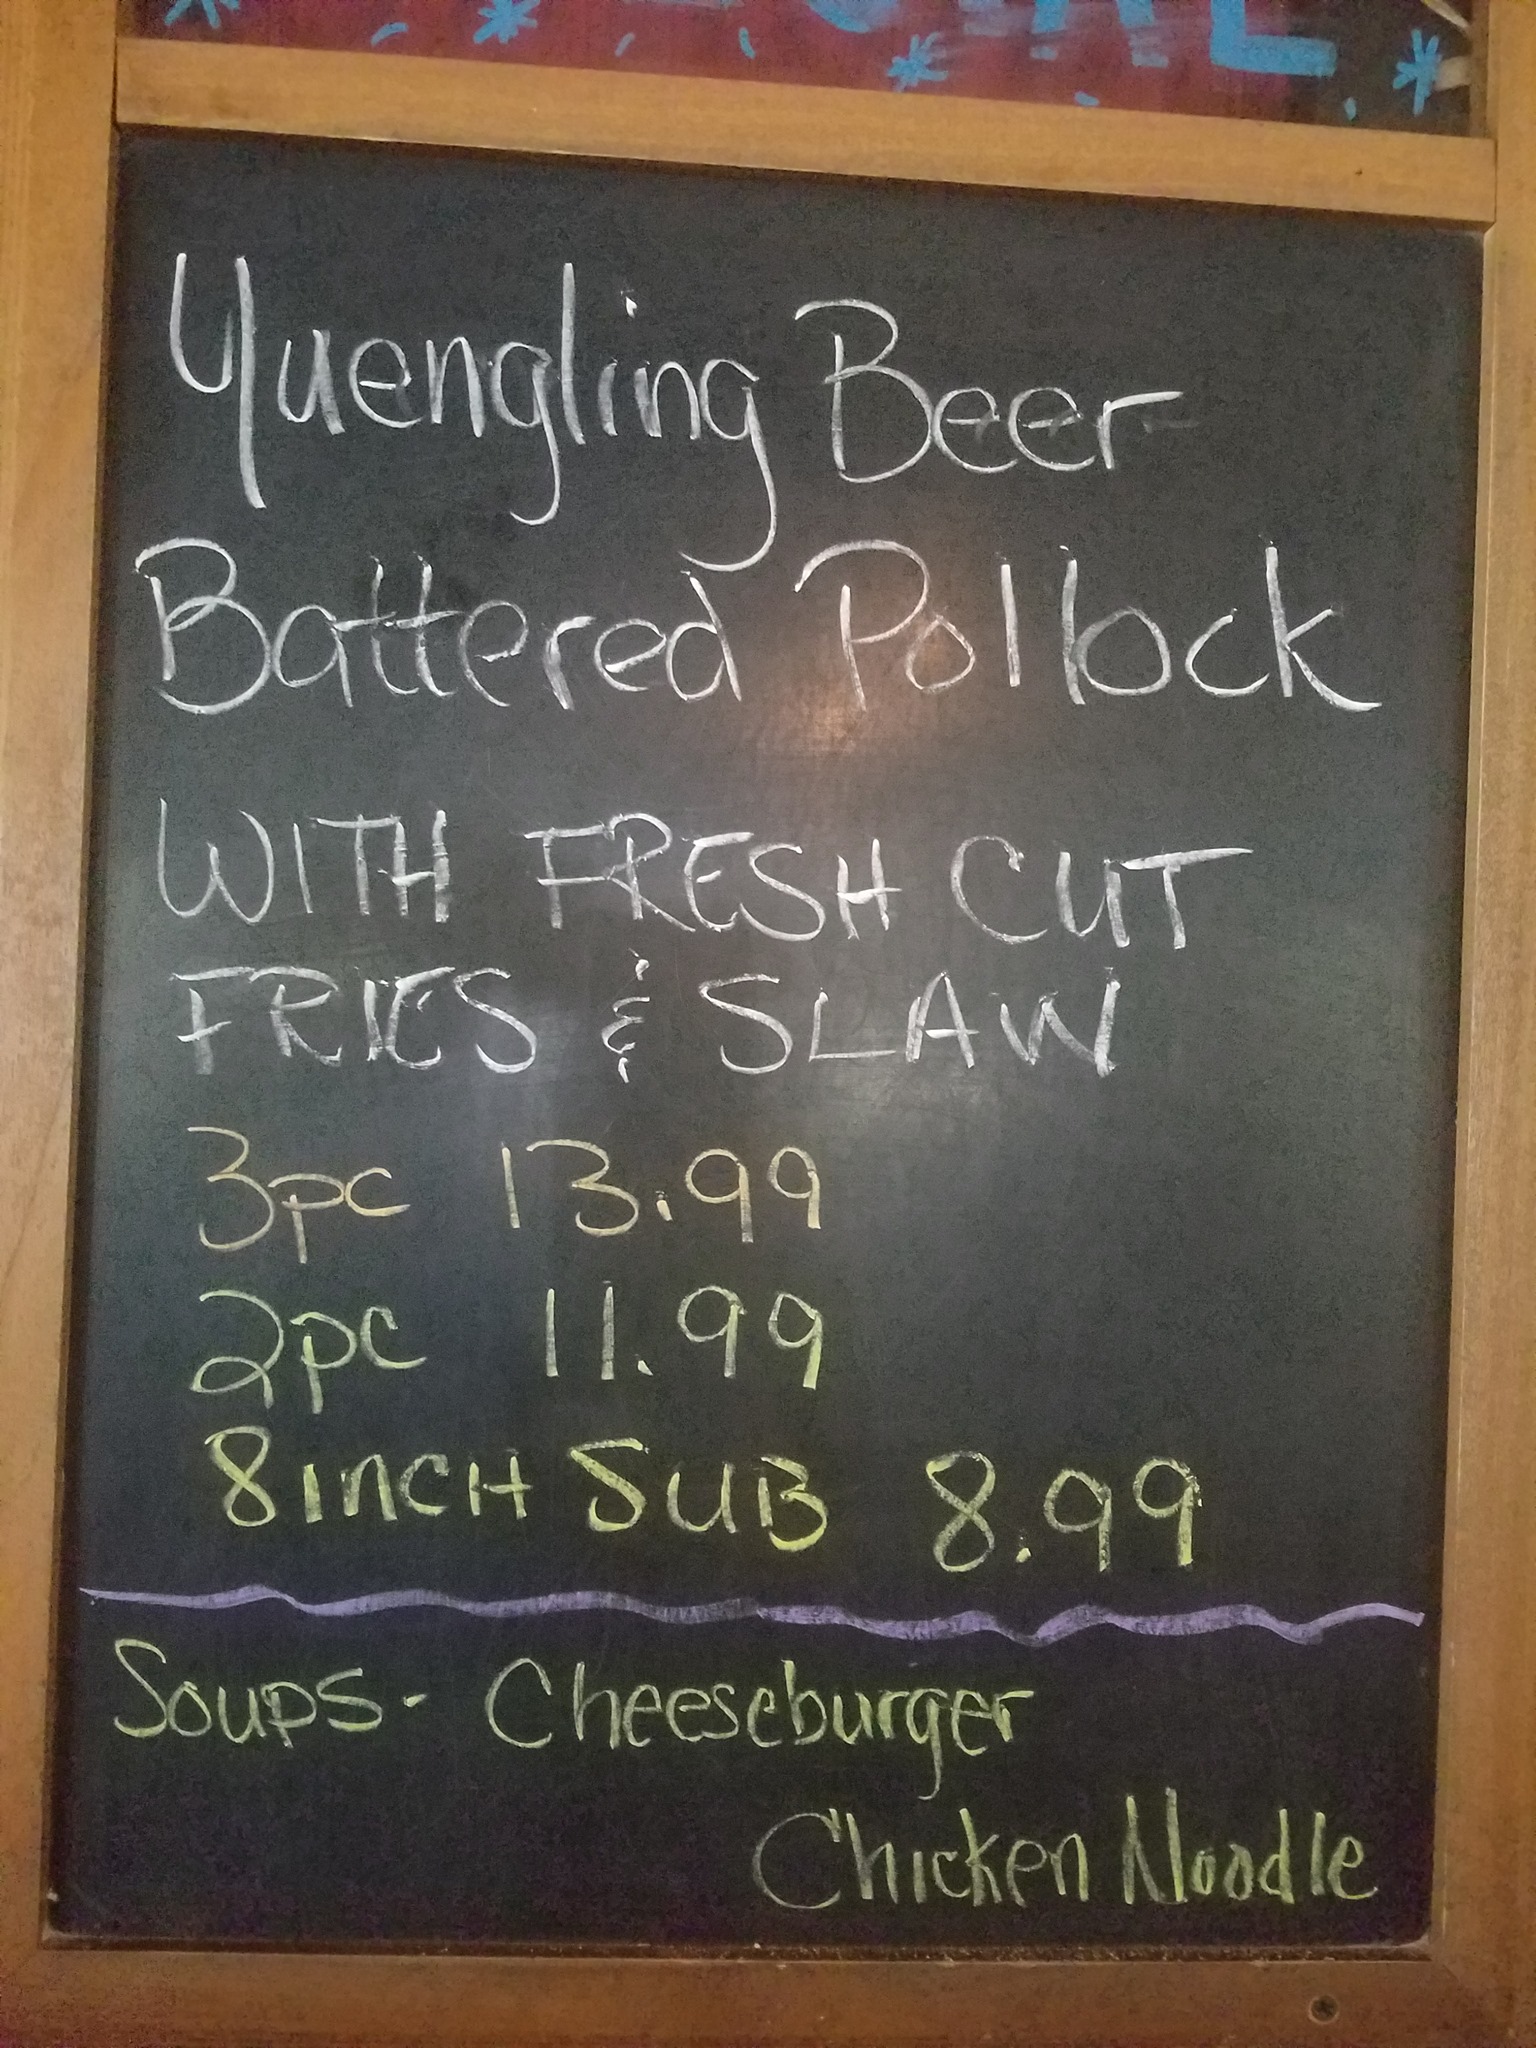 Yuengling Beer
Battered Pollock
WITH FRESH CUT
FRIES & SLAW
3pc 13.99
2pc 11.99
8 INCH SUB 8.99
Soups - Cheeseburger
Chicken Noodle